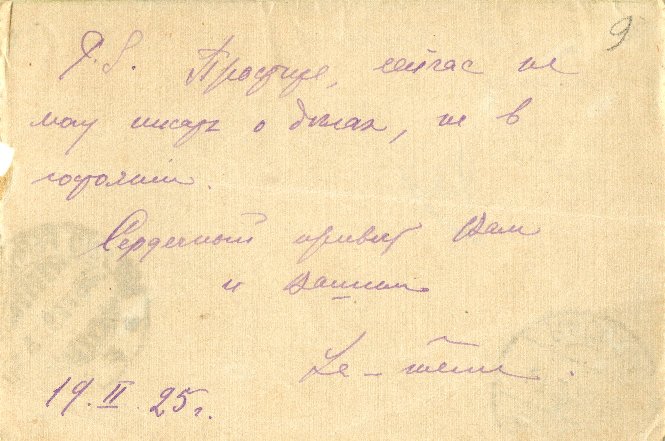 9
P.S. Простите, сейчас не
могу писать о делах, не в
состоянии.
Сердечный привет Вам
и Вашим
19.II.25 г.